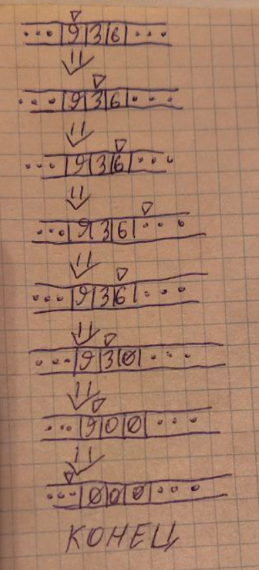 ...|9|3|6|...
...|9|3|6|...
...|9|3|6|...
...|9|3|6|...
...|9|3|6|...
...|9|3|0|...
...|9|0|0|...
...|0|0|0|...
КОНЕЦ